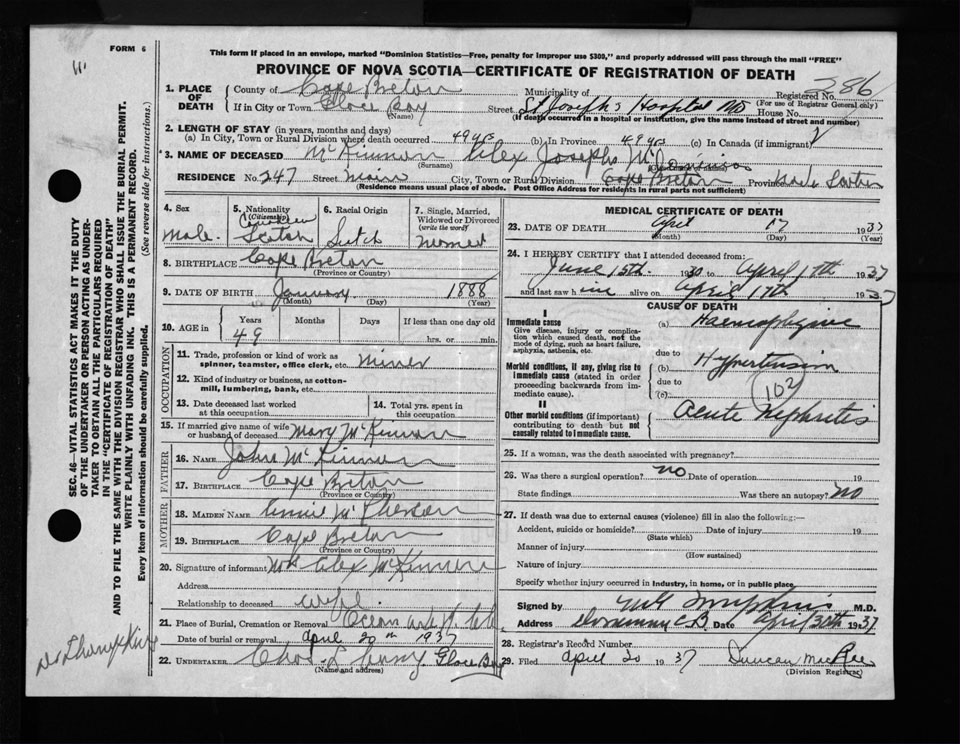 FORM 6
This form if placed in an envelope, marked "Dominion Statistics—Free, penalty for improper use $300," and properly addressed will pass through the mail "FREE"
PROVINCE OF NOVA SCOTIA—CERTIFICATE OF REGISTRATION OF DEATH
286
1. PLACE OF DEATH
County of Cape Breton Municipality of Registered No.
(For use of Registrar General only)
If in City or Town Glace Bay Street St. Joseph's Hospital House No.
(Name) (If death occurred in a hospital or institution, give the name instead of street and number)
2. LENGTH OF STAY (in years, months and days)
(a) In City, Town or Rural Division where death occurred 49 yrs (b) In Province 49 yrs (c) In Canada (if immigrant)
3. NAME OF DECEASED McKinnon Alex Joseph
(Surname)
Dominion
RESIDENCE No. 247 Street Main City, Town or Rural Division Cape Breton Province Nova Scotia
(Residence means usual place of abode. Post Office Address for residents in rural parts not sufficient)
4. Sex
Male
5. Nationality (Citizenship)
Canadian
Scotch
6. Racial Origin
Scotch
7. Single, Married, Widowed or Divorced (write the word)
Married
8. BIRTHPLACE Cape Breton
(Province or Country)
9. DATE OF BIRTH January 1888
(Month) (Day) (Year)
10. AGE in Years Months Days If less than one day old
49 hrs. or min.
OCCUPATION
11. Trade, profession or kind of work as spinner, teamster, office clerk, etc. miner
12. Kind of industry or business, as cotton-mill, lumbering, bank, etc.
13. Date deceased last worked at this occupation
14. Total yrs. spent in this occupation
15. If married give name of wife or husband of deceased Mary McKinnon
FATHER
16. NAME John McKinnon
17. BIRTHPLACE Cape Breton
(Province or Country)
MOTHER
18. MAIDEN NAME Annie McPherson
19. BIRTHPLACE Cape Breton
(Province or Country)
20. Signature of informant Mrs Alex McKinnon
Address
Relationship to deceased wife
21. Place of Burial, Cremation or Removal Ocean
Date of burial or removal April 20th 1937
22. UNDERTAKER Glace Bay
(Name and address)
MEDICAL CERTIFICATE OF DEATH
23. DATE OF DEATH April 17 1937
(Month) (Day) (Year)
24. I HEREBY CERTIFY that I attended deceased from:
June 15th 1930 to April 17th 1937
and last saw him alive on April 17th 1937
CAUSE OF DEATH
I
Immediate cause
Give disease, injury or complication which caused death, not the mode of dying, such as heart failure, asphyxia, asthenia, etc.
(a)
due to
Morbid conditions, if any, giving rise to immediate cause (stated in order proceeding backwards from immediate cause).
(b) Hypertension
due to
(c)
102
II
Other morbid conditions (if important) contributing to death but not causally related to immediate cause.
Acute Nephritis
25. If a woman, was the death associated with pregnancy?
26. Was there a surgical operation? no Date of operation 19
State findings Was there an autopsy? no
27. If death was due to external causes (violence) fill in also the following:—
Accident, suicide or homicide? Date of injury 19
(State which)
Manner of injury
(How sustained)
Nature of injury
Specify whether injury occurred in industry, in home, or in public place.
Signed by M.D.
Address Dominion C.B. Date April 1937
28. Registrar's Record Number
29. Filed April 20 1937 Duncan MacRae
(Division Registrar)
SEC. 46—VITAL STATISTICS ACT MAKES IT THE DUTY
OF THE UNDERTAKER OR PERSON ACTING AS UNDER-
TAKER TO OBTAIN ALL THE PARTICULARS REQUIRED
IN THE "CERTIFICATE OF REGISTRATION OF DEATH"
AND TO FILE THE SAME WITH THE DIVISION REGISTRAR WHO SHALL ISSUE THE BURIAL PERMIT.
WRITE PLAINLY WITH UNFADING INK. THIS IS A PERMANENT RECORD.
Every item of information should be carefully supplied. (See reverse side for instructions.)